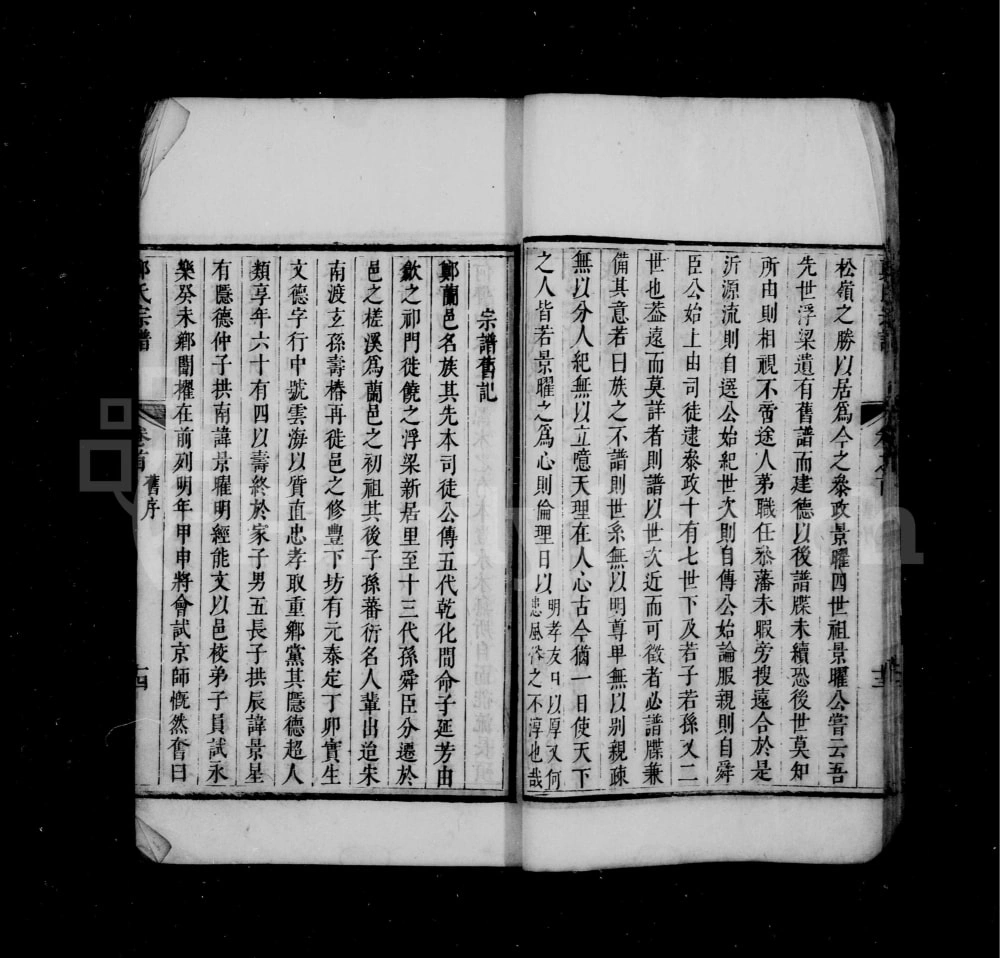 松嶺之勝以居爲今之叅政景曜四世祖景曜公嘗云吾
先世浮梁遺有舊譜而建德以後譜牒未續恐後世莫知
所由則相視不啻途人弟職任叅藩未暇旁搜遠合於是
沂源流則自選公始紀世次則自傳公始論服親則自舜
臣公始上由司徒逮叅政十有七世下及若子若孫又二
世也葢遠而莫詳者則譜以世次近而可徵者必譜牒兼
備其意若曰族之不譜則世系無以明尊卑無以别親疎
無以分人紀無以立噫天理在人心古今猶一日使天下
之人皆若景曜之爲心則倫理日以明孝友日以厚又何
患風俗之不淳也哉
宗譜舊記
鄭蘭邑名族其先本司徒公傳五代乾化間命子延芳由
歙之祁門徙僥之浮梁新居里至十三代孫舜臣分遷於
邑之槎溪爲蘭邑之初祖其後子孫蕃衍名人輩出迨宋
南渡玄孫壽椿再徙邑之修豐下坊有元泰定丁卯實生
文德字行中號雲海以質直忠孝取重鄉黨其隱德超人
類享年六十有四以壽終於家子男五長子拱辰諱景星
有隱德仲子拱南諱景曜明經能文以邑校弟子員試永
樂癸未鄉闈櫂在前列明年甲申將會試京師慨然奮曰
氏宗譜
卷首
舊序
十四